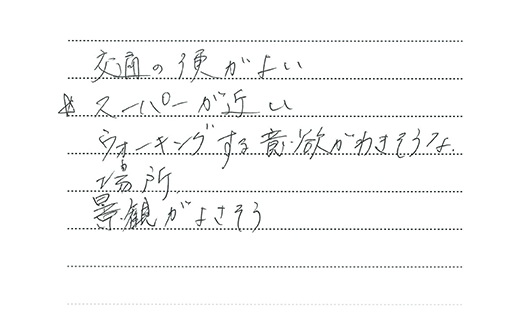 交通の便がよい
☆スーパーが近い
ウォーキングする意欲がわきそうな
場所
景観がよさそう